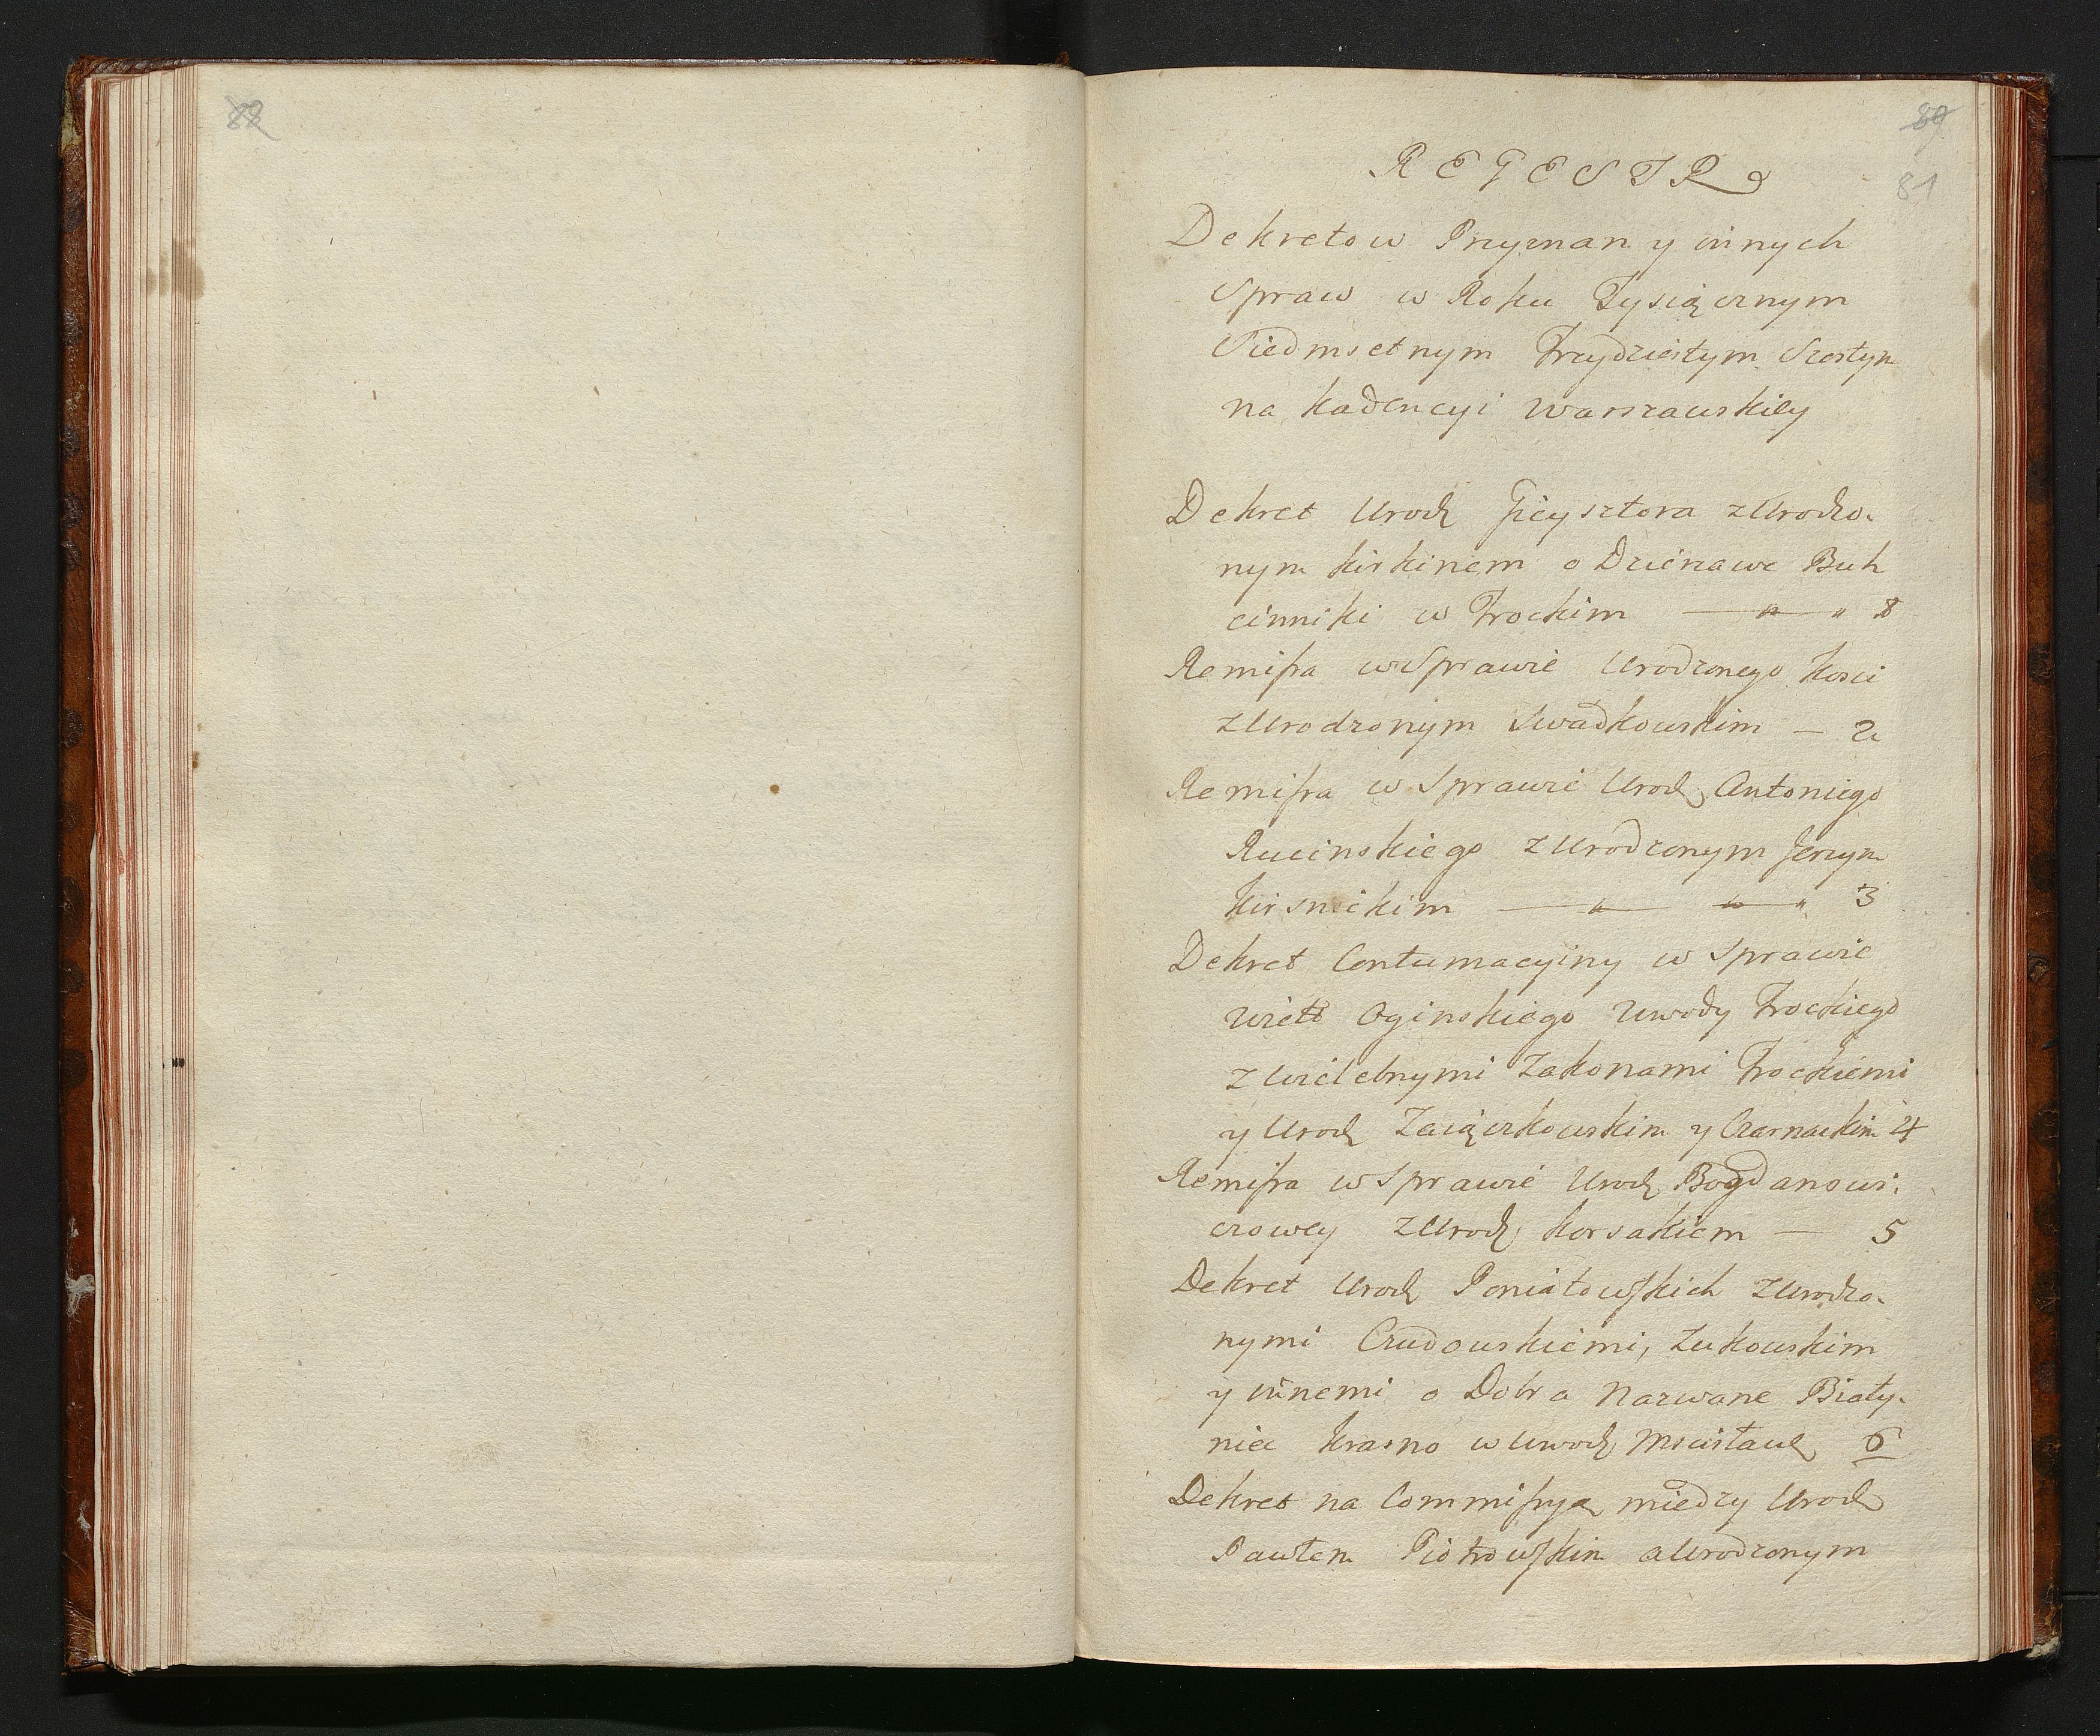 88
89
81
REGESTR
Dekretow Przyznan y innych
Spraw w Roku Tysiącznym
Siedmsetnym Trzydziestym Szostym
na Kadencyi Warszawskiey
Dekret Urodz Gieysztora z Urodzo-
nym Kirkinem o Dzierzawe Buh
cinniki w Trockim — " — " 1
Remissa w Sprawie Urodzonego Kosci
z Urodzonym Swadkowskim — 2
Remissa w Sprawie Urodz Antoniego
Rucinskiego z Urodzonym Jerzym
Kirsnickim — " — " — " 3
Dekret Contumacyiny w Sprawie
Wielo Oginskiego Wwody Trockiego
z Wielebnymi Zakonami Trockiemi
y Urodz Zaiączkowskim y Czarnackim 4
Remissa w Sprawie Urodz Bogdanowi-
czowey z Urodz Korsakiem — 5
Dekret Urodz Poniatowskich z Urodzo-
nymi Czudowskiemi, Zukowskim
y innemi o Dobra Nazwane Biały-
nicz Krasno w Wwodz Mscisławz 6
Dekret na Commissyą miedzy Urodz
Pawłem Piotrowskim a Urodzonym